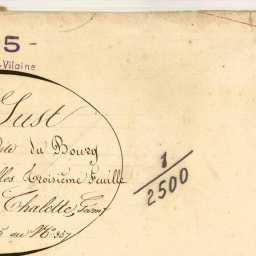 5 -
-Vilaine
Just
dite du Bourg
lles Troisième Feuille
Chalotte,
au N° 357
1/2500